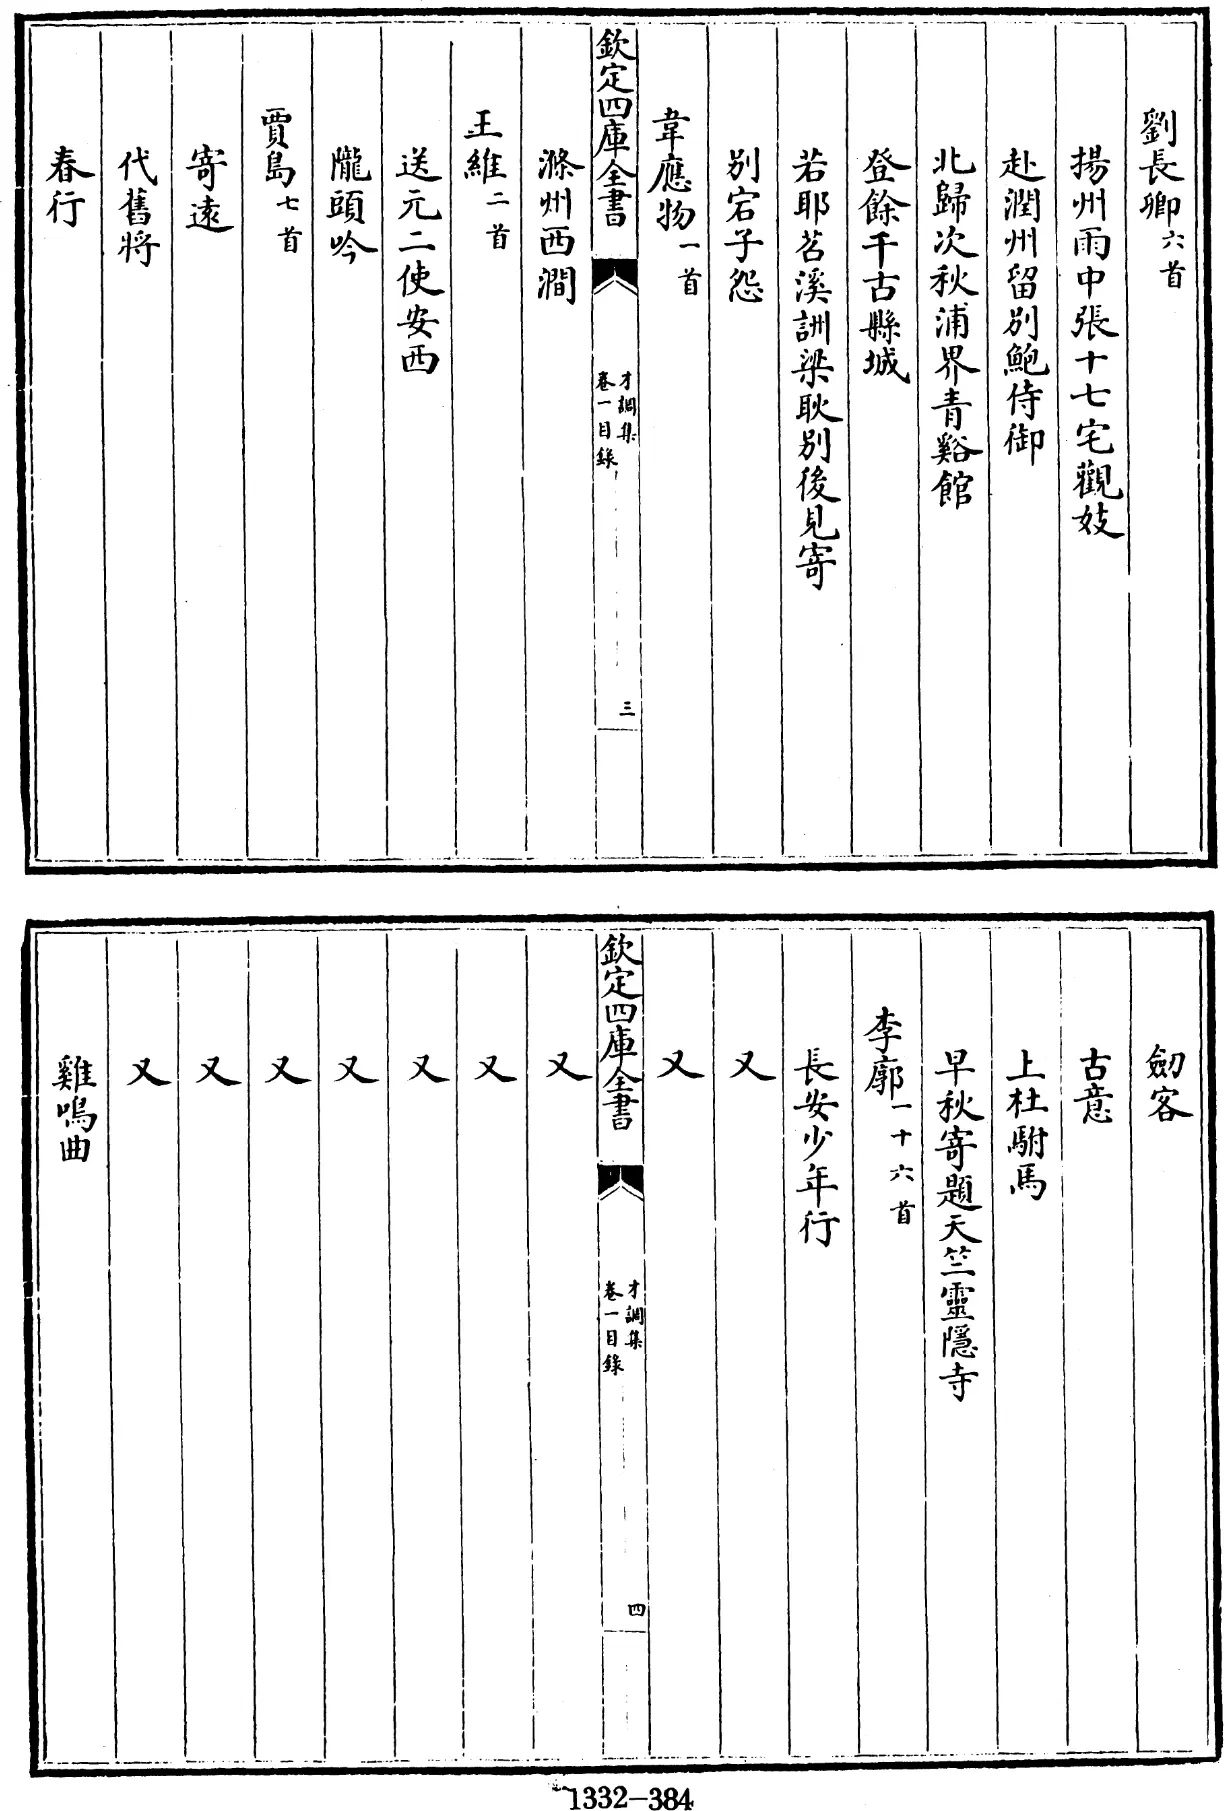 劉長卿六首
揚州雨中張十七宅觀妓
赴潤州留別鮑侍御
北歸次秋浦界青谿館
登餘干古縣城
若耶苕溪詶梁耿別後見寄
別宕子怨
韋應物一首
欽定四庫全書
才調集
卷一目錄
三
滁州西澗
王維二首
送元二使安西
隴頭吟
賈島七首
寄遠
代舊將
春行
劒客
古意
上杜駙馬
早秋寄題天竺靈隱寺
李廓一十六首
長安少年行
又
又
欽定四庫全書
才調集
卷一目錄
四
又
又
又
又
又
又
又
雞鳴曲
1332-384